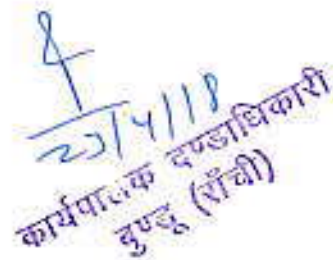 23/4/18
कार्यपालक दण्डाधिकारी
बुण्डू (राँची)